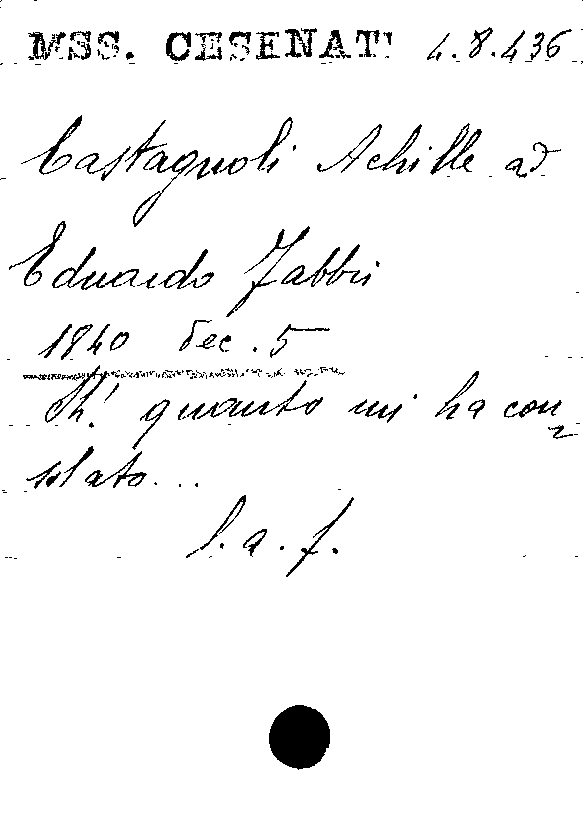 MSS. CESENATI 4.8.436
Castagnoli Achille ad
Eduardo Fabbri
1840 dec. 5
Oh! quanto mi ha con=
solato...
l. a. f.